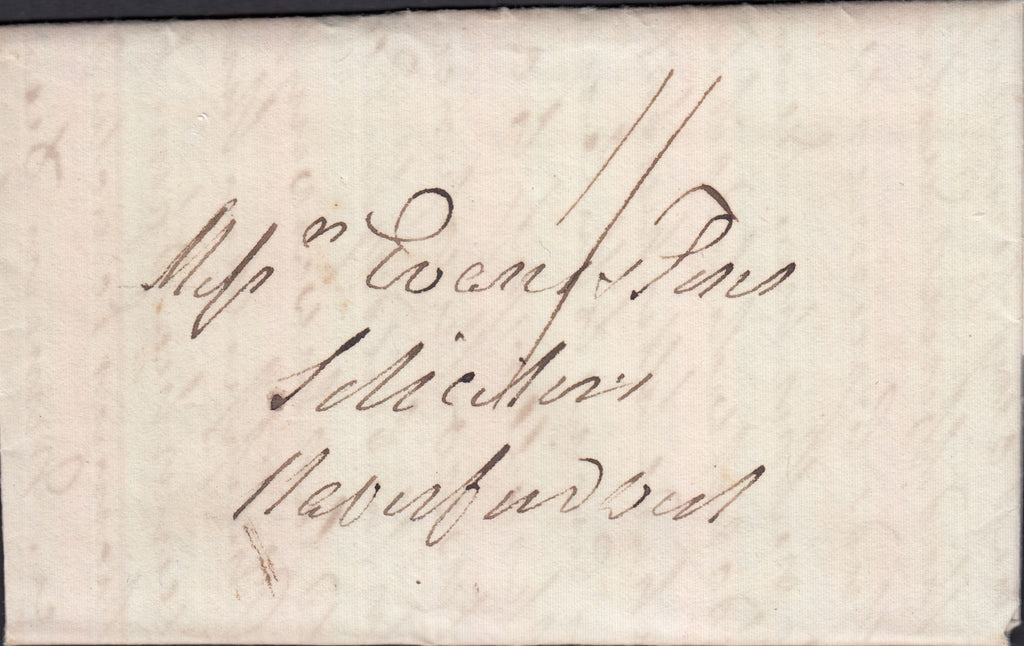 Messrs Evans & Sons
Solicitors
Haverfordwest